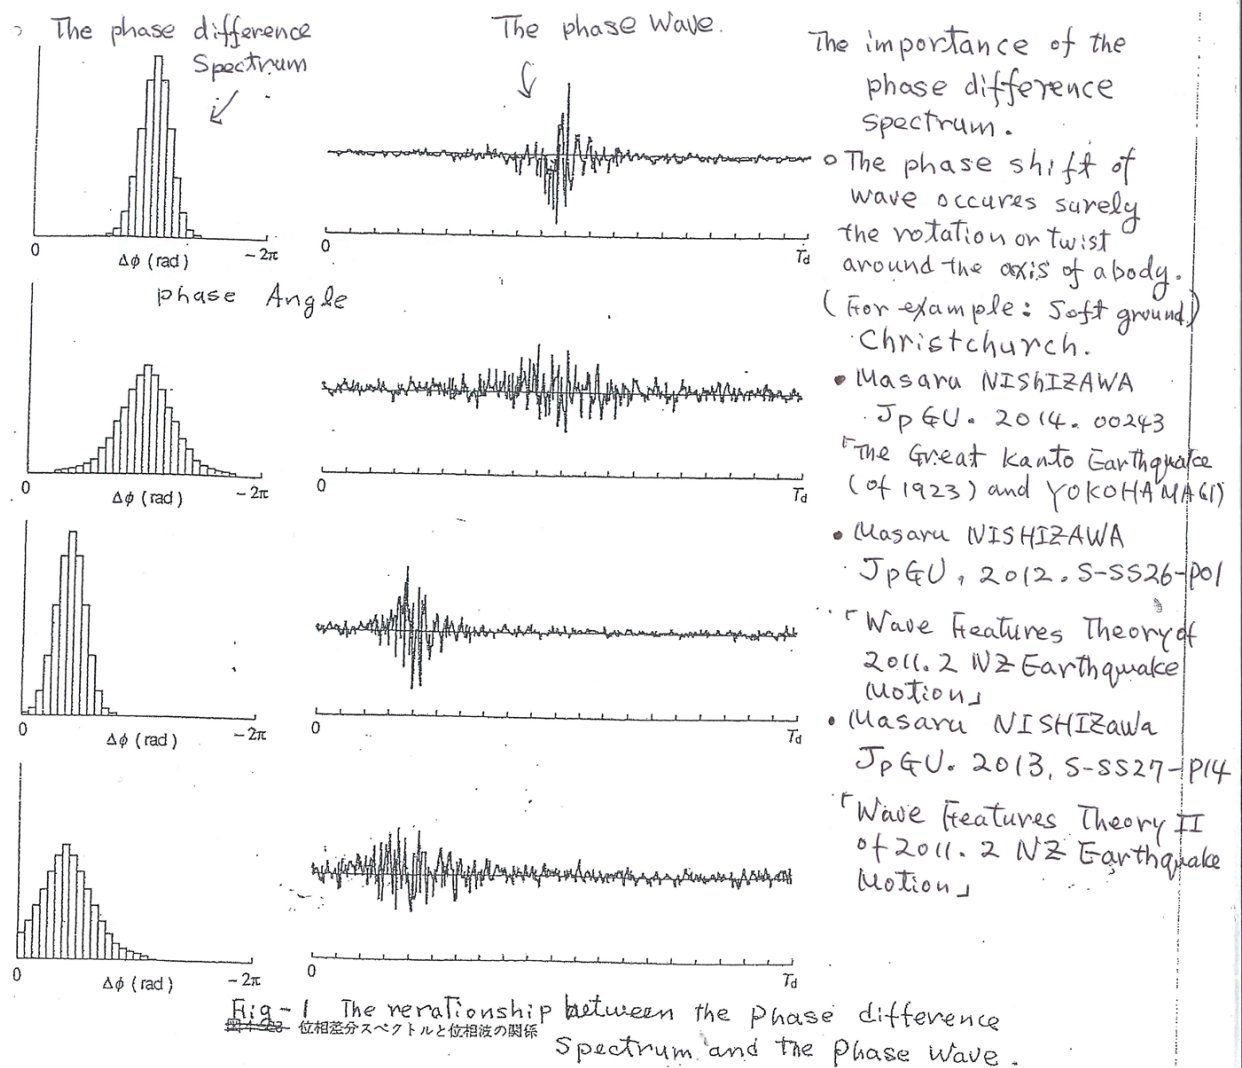 The phase difference
Spectrum
The phase Wave.
0
Δϕ (rad)
-2π
0
Td
phase Angle
0
Δϕ (rad)
-2π
0
Td
0
Δϕ (rad)
-2π
0
Td
0
Δϕ (rad)
-2π
0
Td
The importance of the
phase difference
spectrum.
○ The phase shift of
wave occures surely
the rotation or twist
around the axis of a body.
(For example: Soft ground)
Christchurch.
• Masaru NISHIZAWA
JpGU. 2014. 00243
「The Great Kanto Earthquake
(of 1923) and YOKOHAMA(1)
• Masaru NISHIZAWA
JpGU, 2012. S-SS26-P01
「Wave Features Theory of
2011.2 NZ Earthquake
Motion」
• Masaru NISHIZawa
JpGU. 2013, S-SS27-P14
「Wave Features Theory II
of 2011.2 NZ Earthquake
Motion」
Fig-1 The rerationship between the phase difference
位相差分スペクトルと位相波の関係
Spectrum and the Phase Wave.